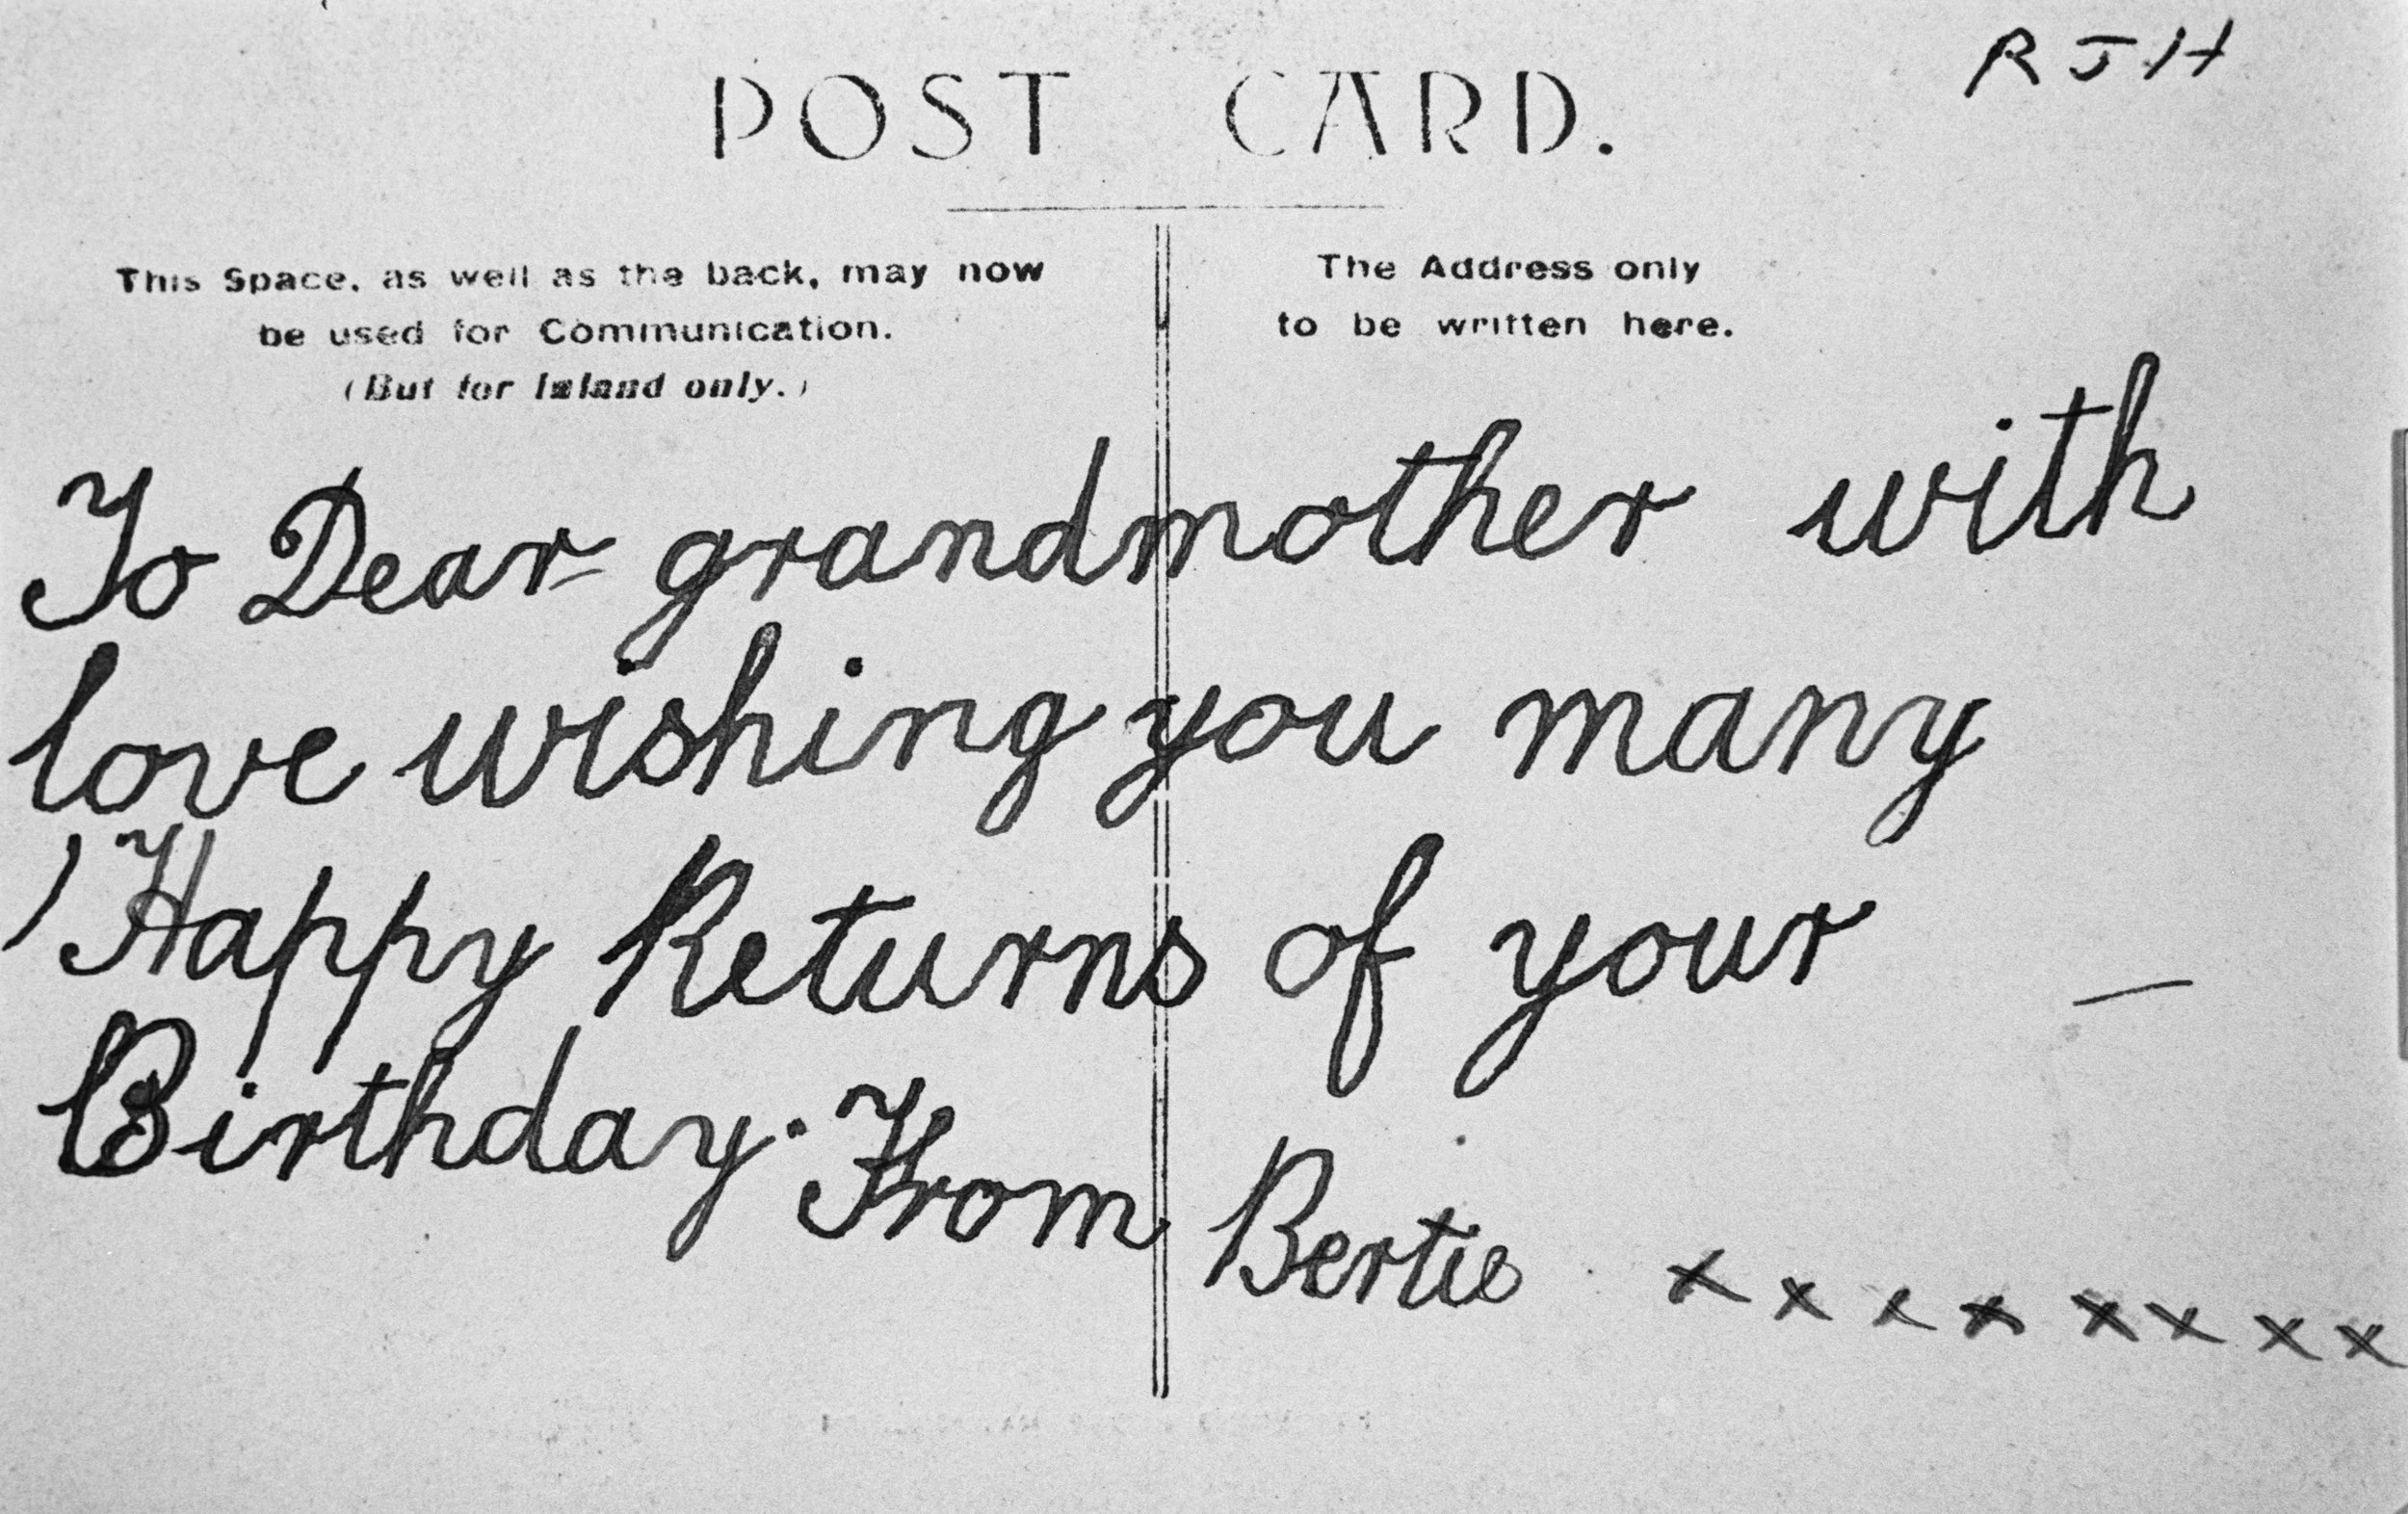 R J H
POST CARD.
This Space, as well as the back, may now
be used for Communication.
(But for Inland only.)
The Address only
to be written here.
To Dear grandmother with
love wishing you many
Happy Returns of your
Birthday. From Bertie x x x x x x x x